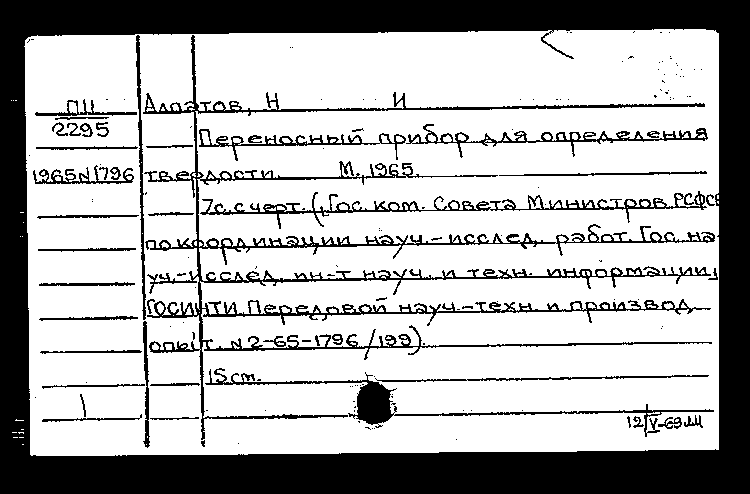 ПII Алпатов, Н И
2295
Переносный прибор для определения
1965 N1796 твердости. М., 1965.
7с. с черт. (, Гос. ком. Совета Министров РСФСР
по координации науч.-исслед. работ. Гос. на-
уч.-исслед. ин-т науч. и техн. информации,
ГОСИНТИ. Передовой науч.-техн. и производ.
опыт. N2-65-1796/199).
15 cm.
12/V-69